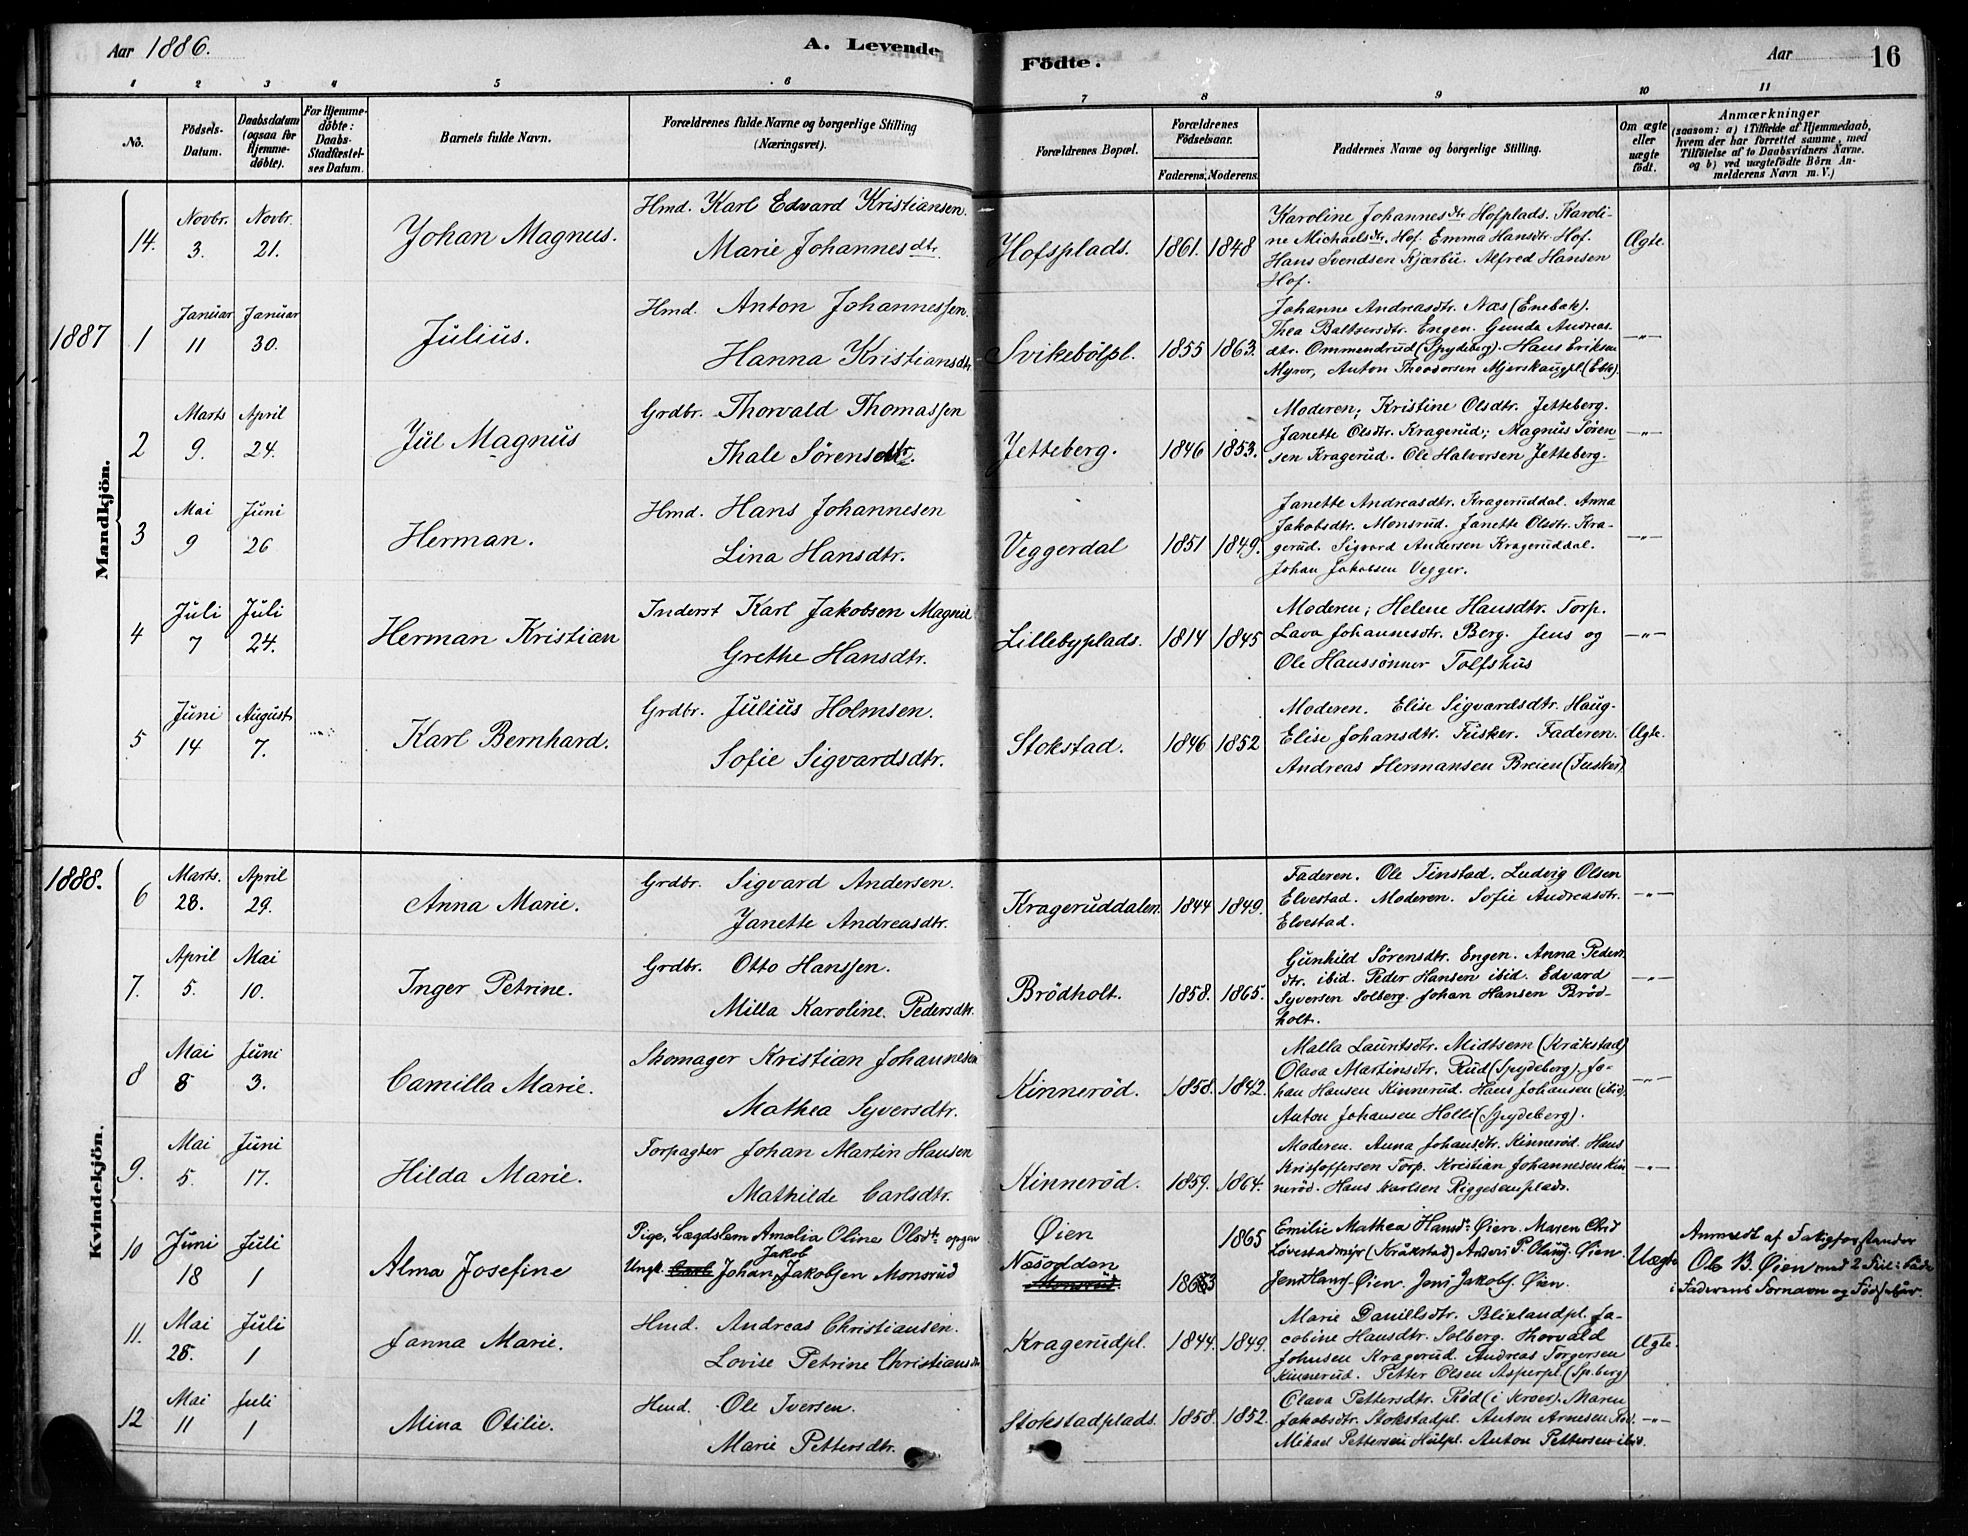 Aar 1886.
A. Levende
Födte.
Aar
16
1 2 3 4 5 6
7 8 9 10 11
No.
Födsels-Datum.
Daabsdatum (ogsaa for Hjemme-döbte).
For Hjemme-döbte: Daabs-Stadfæstel-ses Datum.
Barnets fulde Navn.
Forældrenes fulde Navne og borgerlige Stilling (Næringsvei).
Forældrenes Bopæl.
Forældrenes Födselsaar.
Faderens. Moderens.
Faddernes Navne og borgerlige Stilling.
Om ægte eller uægte födt.
Anmærkninger
(saasom: a) i Tilfælde af Hjemmedaab,
hvem der har forrettet samme, med
Tilföielse af to Daabsvidners Navne.
og b) ved uægtefödte Börn An-
melderens Navn m. V.)
Mandkjön.
14. Novbr. 3. Novbr. 21. Johan Magnus. Hmd. Karl Edvard Kristiansen.
Marie Johannesdtr.
Hofsplads. 1861. 1848
Karoline Johannesdtr. Hofplads. Karoli-
ne Michaelsdtr. Hof. Emma Hansdtr. Hof.
Hans Svendsen Kjærbü. Alfred Hansen
Hof.
Ægte.
1887 1 Januar 11 Januar 30. Julius. Hmd. Anton Johannessen.
Hanna Kristiansdtr
Svikebölpl. 1855 1863.
Johanne Andreasdtr. Næs (Enebak).
Thea Baltsersdtr. Engen. Gunda Andreas-
dtr. Ommendrud (Spydeberg). Hans Eriksen
Myrer, Anton Theodorsen Mjerskaugpl (Ebk).
—„—
2 Marts 9. April 24. Jul Magnus Grdbr. Thorvald Thomassen
Thale Sørensdtr.
Jetteberg. 1846 1853.
Moderen; Kristine Olsdtr. Jetteberg.
Janette Olsdtr. Kragerud; Magnus Søren-
sen Kragerud. Ole Halvorsen Jetteberg.
—„—
3 Mai 9 Juni 26 Herman. Hmd. Hans Johannesen
Lina Hansdtr.
Veggerdal 1851 1849.
Janette Andreasdtr. Krageruddal. Anna
Jakobsdtr. Monsrud. Janette Olsdtr. Kra-
gerud. Sigvard Andersen Krageruddal.
Johan Jakobsen Vegger.
—„—
4 Juli 7 Juli 24. Herman Kristian Inderst Karl Jakobsen Magnil
Grethe Hansdtr.
Lillebyplads. 1814 1845
Moderen; Helene Hansdtr. Torp.
Lava Johannesdtr. Berg. Jens og
Ole Hanssønner Tolfshus
—„—
5 Juni 14 August 7. Karl Bernhard. Grdbr. Julius Holmsen.
Sofie Sigvardsdtr.
Stokstad. 1846 1852
Moderen. Elise Sigvardsdtr. Haug-
Elise Johansdtr. Fusker. Faderen.
Andreas Hermansen Breien (Fusker)
Ægte.
Kvindekjön.
1888. 6 Marts. 28. April 29. Anna Marie. Grdbr. Sigvard Andersen.
Janette Andreasdtr.
Krageruddalen 1844 1849.
Faderen. Ole Tinstad. Ludvig Olsen
Elvestad. Moderen. Sofie Andreasdtr.
Elvestad.
—„—
7. April 5. Mai 10. Inger Petrine. Grdbr. Otto Hanssen.
Milla Karoline Pedersdtr.
Brödholt. 1858. 1865.
Gunhild Sørensdtr. Engen. Anna Peders-
dtr. ibid. Peder Hansen ibid. Edvard
Syversen Solberg. Johan Hansen Bröd-
holt.
—„—
8 Mai 8 Juni 3. Camilla Marie. Skomager Kristian Johannesen
Mathea Syversdtr.
Kinneröd. 1858. 1842.
Malla Lauritsdtr. Midtsem (Kråkstad)
Olava Martinsdtr. Rud (Spydeberg), Jo-
han Hansen Kinnerud. Hans Johansen (ibid).
Anton Johansen Holli (Spydeberg).
—„—
9. Mai 5. Juni 17. Hilda Marie. Forpagter Johan Martin Hansen
Mathilde Carlsdtr.
Kinneröd. 1859. 1864.
Moderen. Anna Johansdtr. Kinneröd. Hans
Kristoffersen Torp. Kristian Johannesen Kin
neröd. Hans Karlsen Riggesenplads.
—„—
10 Juni 18 Juli 1 Alma Josefine Pige, Lægdslem Amalia Olina Olsdtr opgav
Jakob
Ungk. Carl Johan Jakobsen Monsrud
Øien 1865
Næsodden
Monsrud. 1863
Emilie Mathea Hansdr Øien. Maren Chrd
Løvestadmyr (Kråkstad) Anders P. Olaus. Øien.
Jens Hans. Øien. Jens Jakobs. Øien.
Uægte
Anmeldt af Fatigforstander
Ole B. Øien med 2 Feil: både
i Faderens Fornavn og Fødselsår.
11. Mai 28. Juli 1 Janna Marie. Hmd. Andreas Christiansen.
Lovise Petrine Christiansdtr
Kragerudpl. 1844. 1849.
Marie Danielsdtr. Blixlandpl. Ja-
cobine Hansdtr. Solberg. Thorvald
Johnsen Kragerud. Andreas Torgersen
Kinnerud. Petter Olsen Asperpl. (Sp.berg)
Ægte.
12 Mai 11 Juli 1 Mina Otilie. Hmd. Ole Iversen.
Marie Pettersdtr.
Stokstadplads. 1858. 1852.
Olava Pettersdtr. Röd (i Kroer). Maren
Jakobsdtr. Stokstadpl. Anton Arnesen ibid.
Mikael Pettersen Hülpl. Anton Pettersen ibid.
—„—